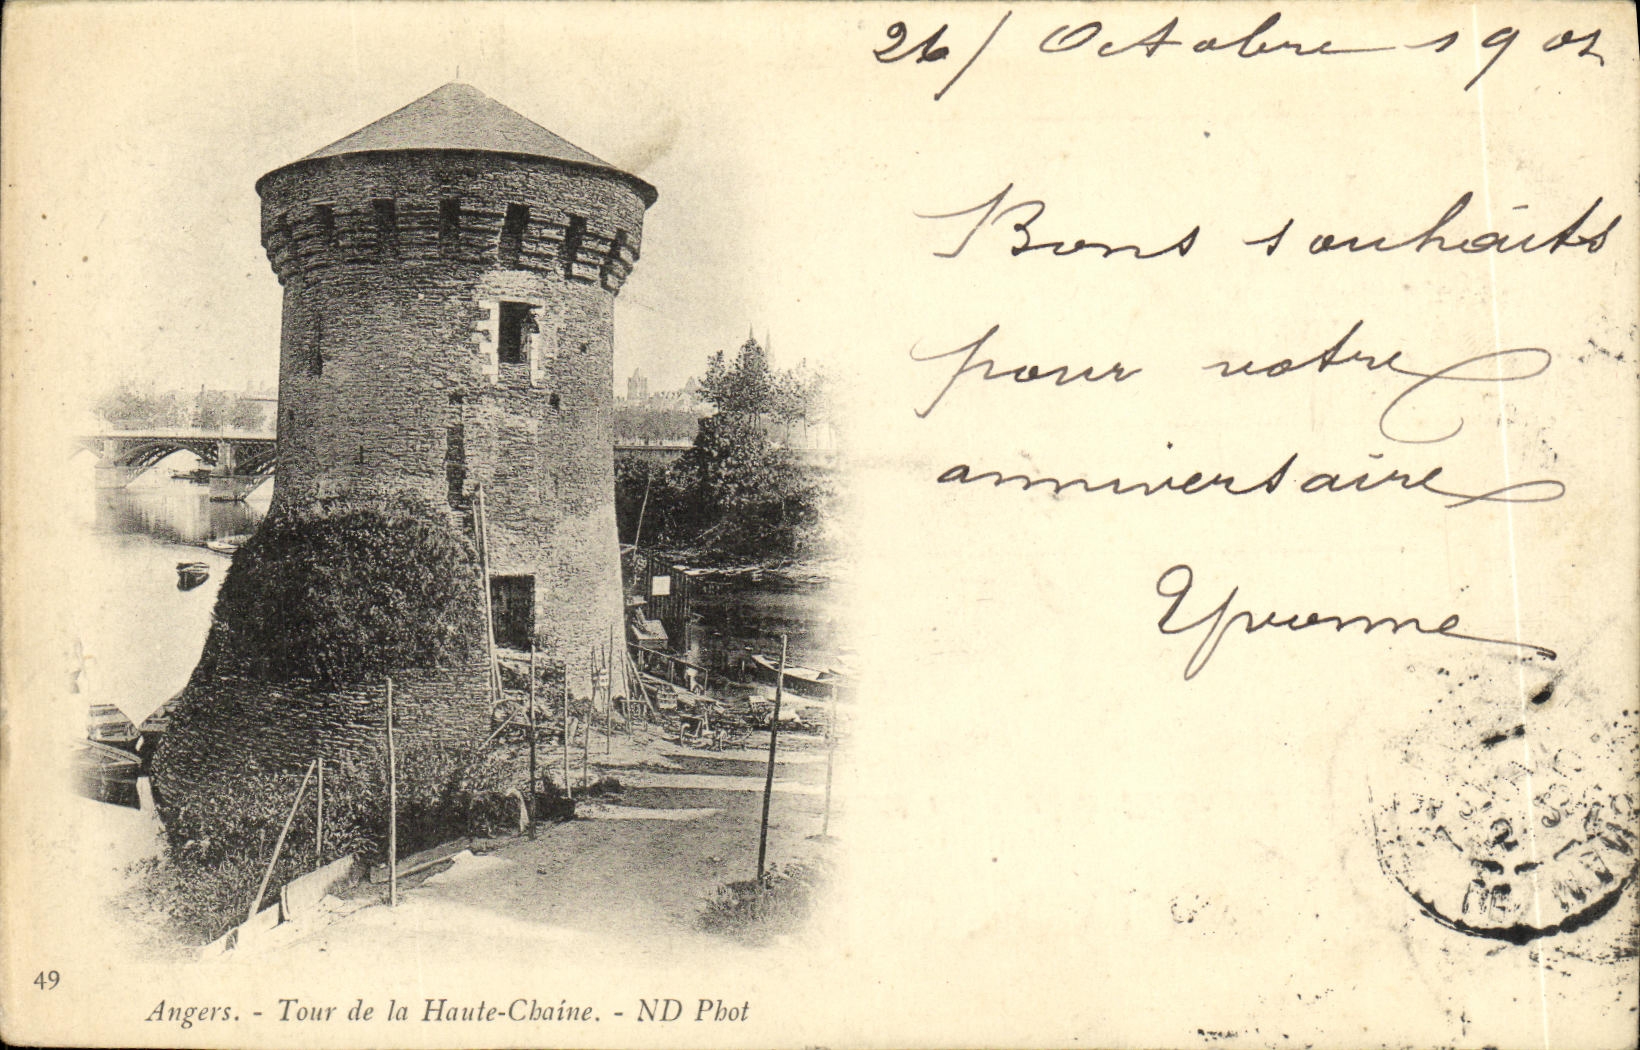 26/ Octobre 1902
Bons souhaits
pour votre
anniversaire
Yvonne
49
Angers. - Tour de la Haute-Chaîne. - ND Phot